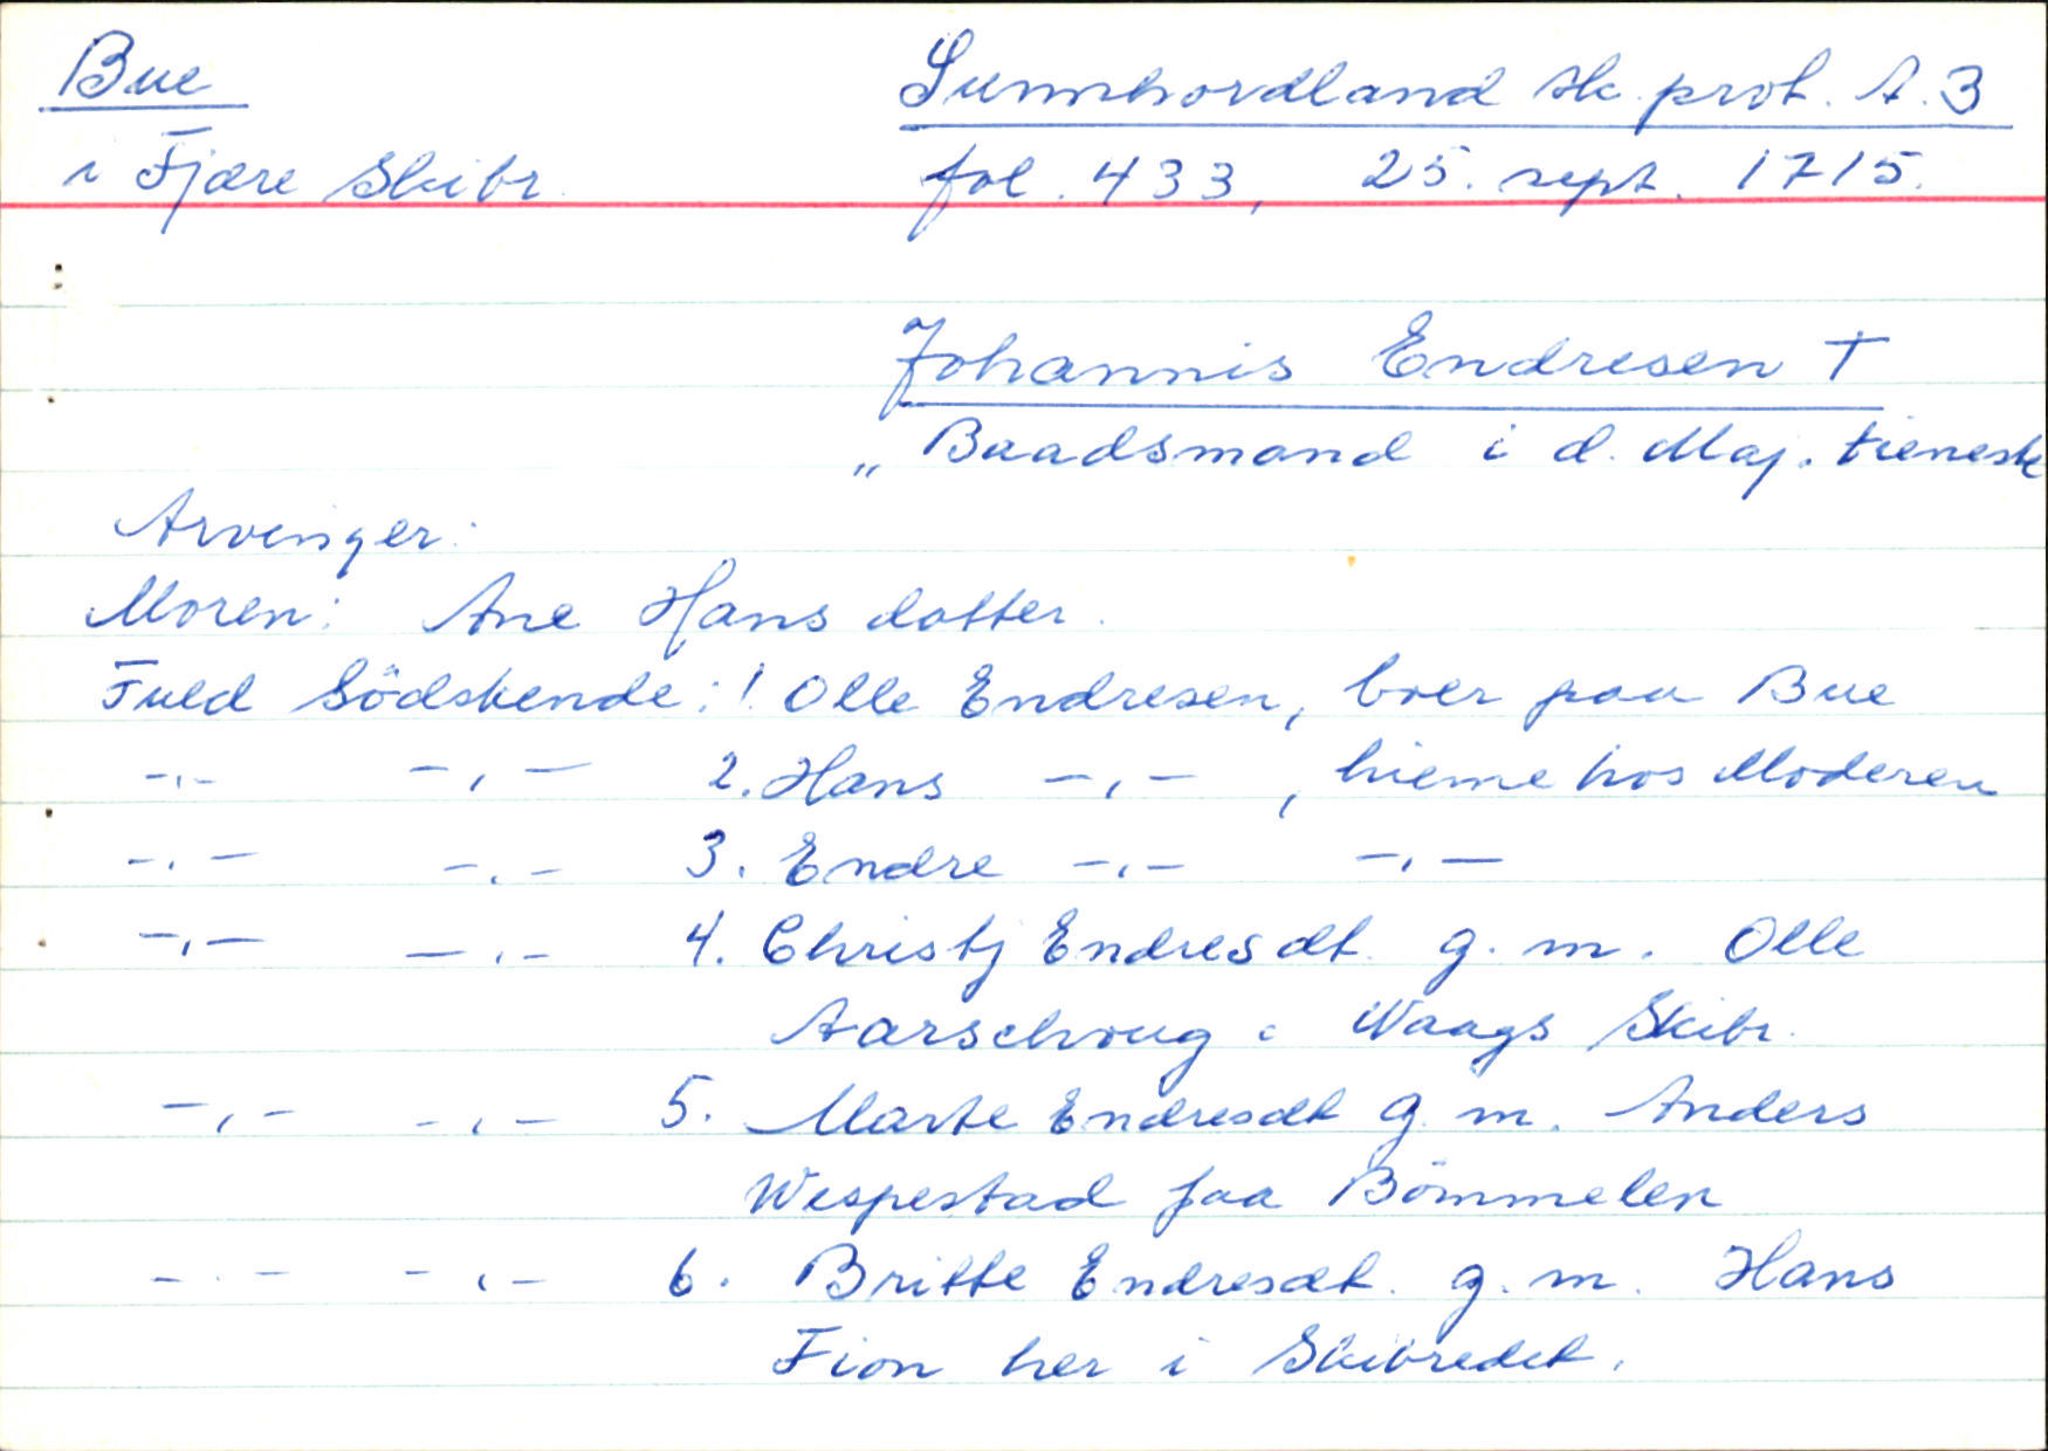 Bue
Sunnhordland sk. prot. A. 3
i Fjære Skibr.
fol. 433, 25. sept. 1715.
Johannis Endresen †
„ Baadsmand i d. Maj. tieneste
Arvinger:
Moren: Ane Hans dotter.
Fuld Södskende: 1 Olle Endresen, boer paa Bue
-„- -„- 2. Hans -„-, hieme hos Moderen
-„- -„- 3. Endre -„- -„-
-„- -„- 4. Christj Endresdt. g. m. Olle
Aarschoug i Waags Skibr.
-„- -„- 5. Marte Endresdt g. m. Anders
Wespestad paa Bömmelen
-„- -„- 6. Britte Endresdt. g. m. Hans
Fion her i Skibredet.